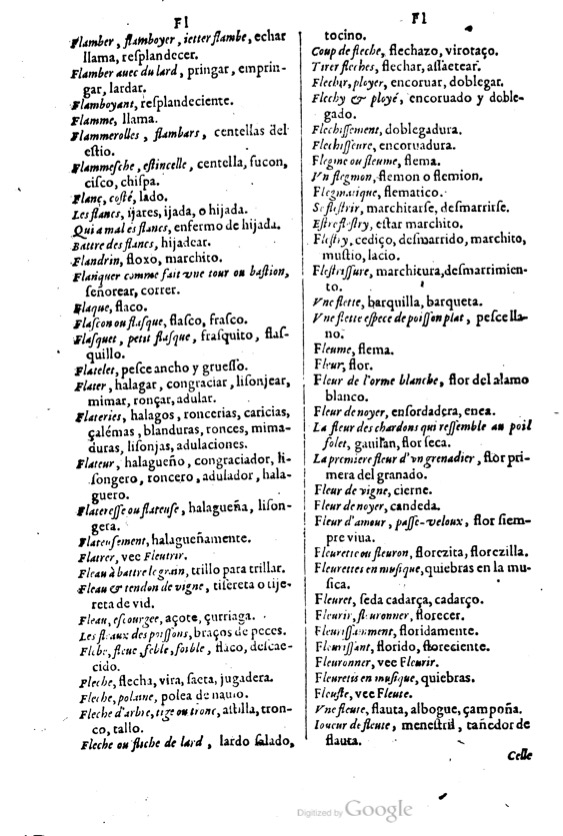 Fl
Flamber, flamboyer, ietter flambe, echar
llama, resplandecer.
Flamber auec du lard, pringar, emprin-
gar, lardar.
Flamboyant, resplandeciente.
Flamme, llama.
Flammerolles, flambars, centellas del
estio.
Flammesche, estincelle, centella, fucon,
cisco, chispa.
Flanc, costé, lado.
Les flancs, ijares, ijada, o hijada.
Qui a mal és flancs, enfermo de hijada.
Battre des flancs, hijadear.
Flandrin, floxo, marchito.
Flanquer comme fait vne tour ou bastion,
señorear, correr.
Flaque, flaco.
Flascon ou flasque, flasco, frasco.
Flasquet, petit flasque, frasquito, flas-
quillo.
Flatelet, pesce ancho y gruesso.
Flater, halagar, congraciar, lisonjear,
mimar, ronçar, adular.
Flateries, halagos, roncerias, caricias,
çalémas, blanduras, ronces, mima-
duras, lisonjas, adulaciones.
Flateur, halagueño, congraciador, li-
songero, roncero, adulador, hala-
guero.
Flateresse ou flateuse, halagueña, lison-
gera.
Flateusement, halagueñamente.
Flatrer, vee Fleutrir.
Fleau à battre le grain, trillo para trillar.
Fleau & tendon de vigne, tisereta o tije-
reta de vid.
Fleau, escourgee, açote, çurriaga.
Les fleaux des poissons, braços de peces.
Flebe, fleue, feble, foible, flaco, descae-
cido.
Fleche, flecha, vira, saeta, jugadera.
Fleche, polaine, polea de nauio.
Fleche d'arbre, tige ou tronc, astilla, tron-
co, tallo.
Fleche ou fliche de lard, lardo salado,
Fl
tocino.
Coup de fleche, flechazo, virotaço.
Tirer fleches, flechar, assaetear.
Flechir, ployer, encoruar, doblegar.
Flechy & ployé, encoruado y doble-
gado.
Flechissement, doblegadura.
Flechisseure, encoruadura.
Flegme ou fleume, flema.
Vn flegmon, flemon o flemion.
Flegmatique, flematico.
Se flestrir, marchitarse, desmarrirse.
Estre flestry, estar marchito.
Flestry, cediço, desmarrido, marchito,
mustio, lacio.
Flestrissure, marchitura, desmarrimien-
to.
Vne flette, barquilla, barqueta.
Vne flette espece de poisson plat, pesce lla-
no.
Fleume, flema.
Fleur, flor.
Fleur de l'orme blanche, flor del alamo
blanco.
Fleur de noyer, ensordadera, enea.
La fleur des chardons qui ressemble au poil
folet, gauilan, flor seca.
La premiere fleur d'vn grenadier, flor pri-
mera del granado.
Fleur de vigne, cierne.
Fleur de noyer, candeda.
Fleur d'amour, passe-veloux, flor siem-
pre viua.
Fleurette ou fleuron, florezita, florezilla.
Fleurettes en musique, quiebras en la mu-
sica.
Fleuret, seda cadarça, cadarço.
Fleurir, fleuronner, florecer.
Fleurissamment, floridamente.
Fleurissant, florido, floreciente.
Fleuronner, vee Fleurir.
Fleuretis en musique, quiebras.
Fleuste, vee Fleute.
Vne fleute, flauta, albogue, çampoña.
Ioueur de fleute, menestril, tañedor de
flauta.
Celle
Digitized by Google